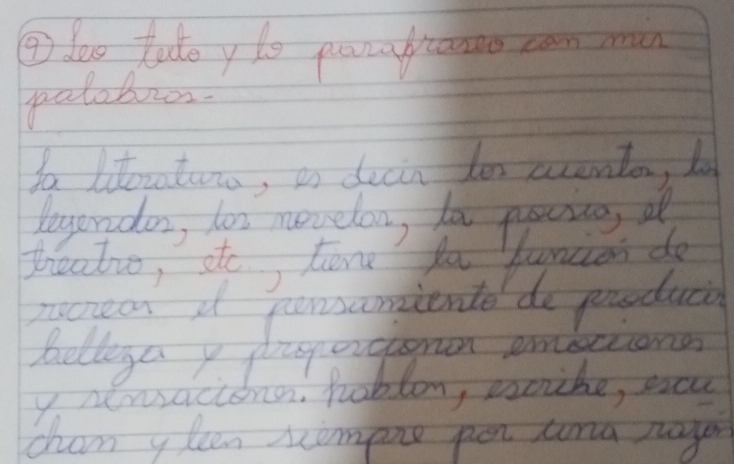 ⑨ Leo texto y lo parafraseo con mis
palabras-
La literatura, es decir los cuentos, las
leyendas, las novelas, la poesia, el
treatro, etc, tiene la función de
recrear el pensamiento de producir
belleza y proporcionar emociones
y sensaciones. hablan, escribe, escu
chan y leen siempre por una razón